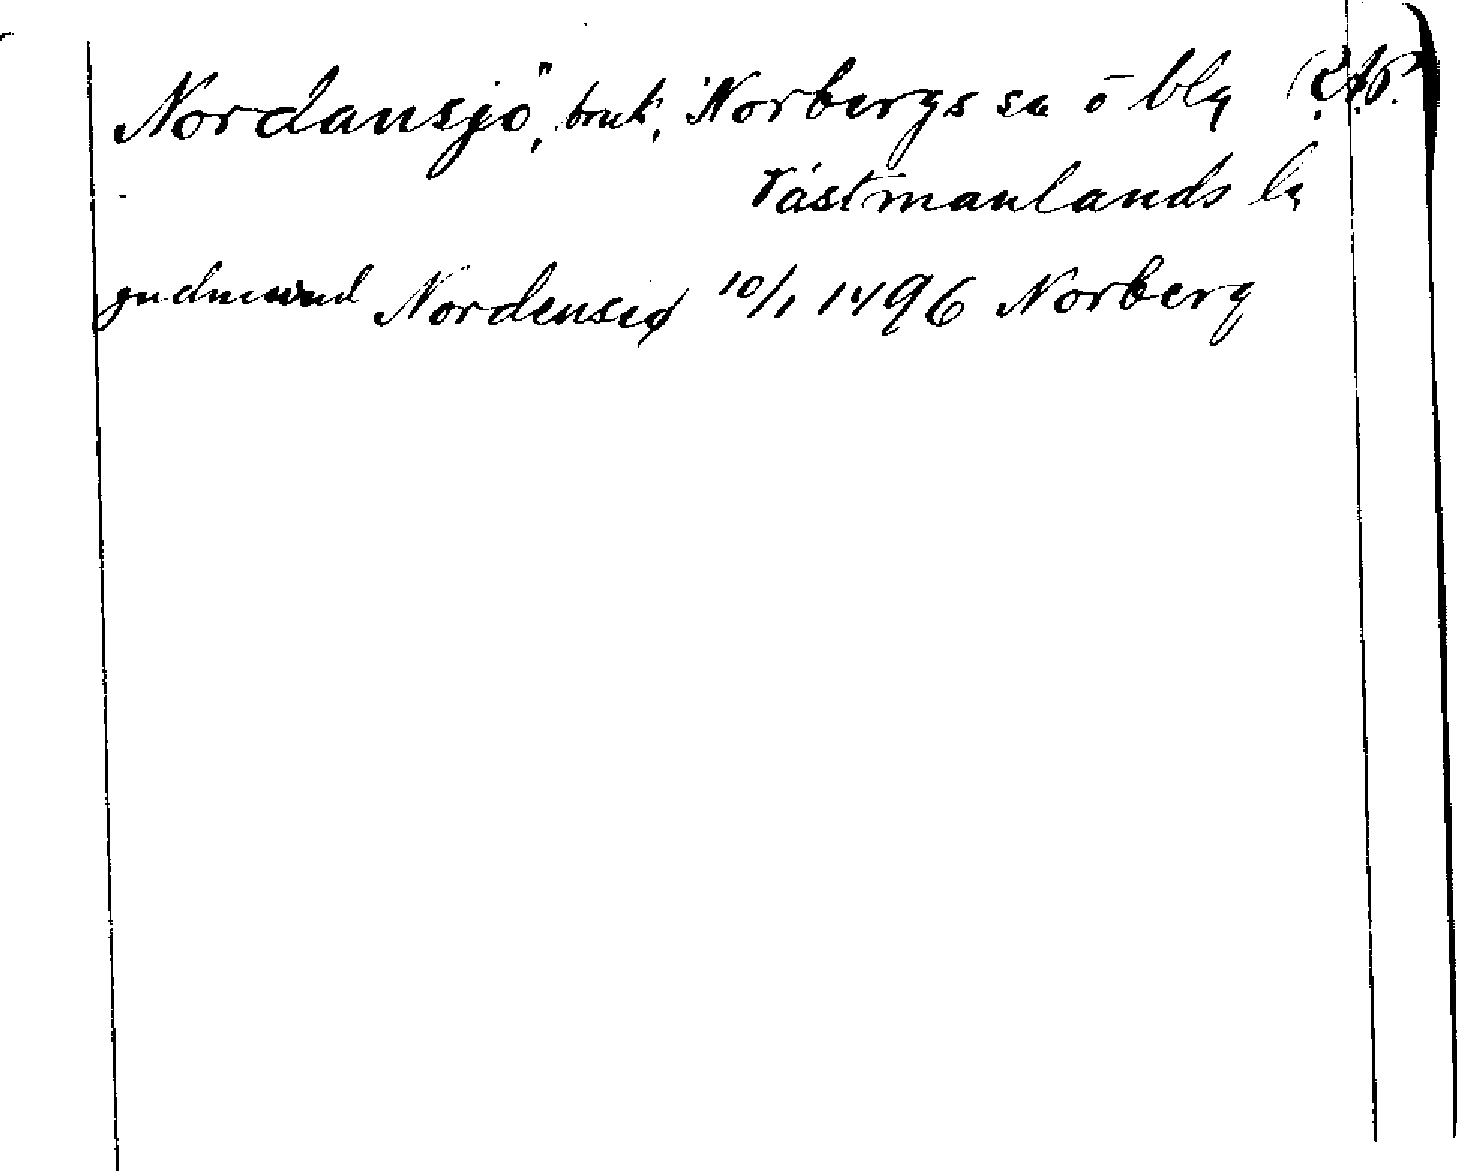 Nordansjö, bruk, Norbergs sn o blg
Västmanlands ln
gudmund Nordensiø 10/1 1496 Norberg